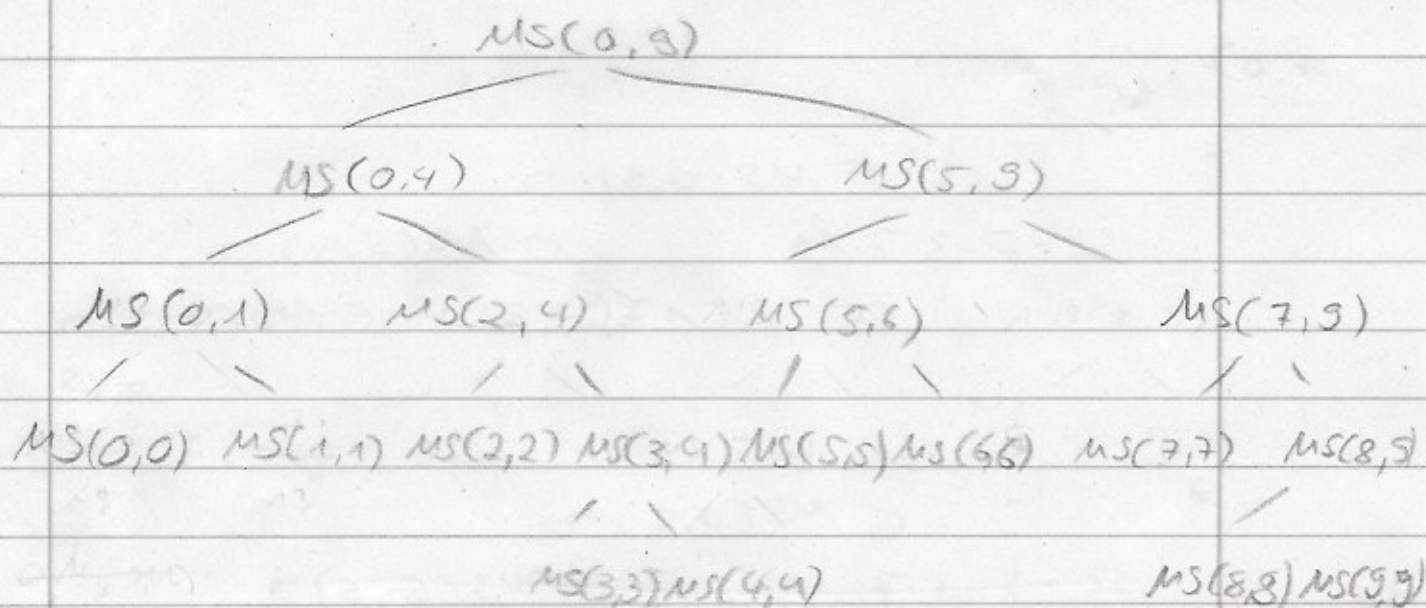 MS(0,9)
MS(0,4) MS(5,9)
MS(0,1) MS(2,4) MS(5,6) MS(7,9)
MS(0,0) MS(1,1) MS(2,2) MS(3,4) MS(5,5) MS(6,6) MS(7,7) MS(8,9)
MS(3,3) MS(4,4) MS(8,8) MS(9,9)